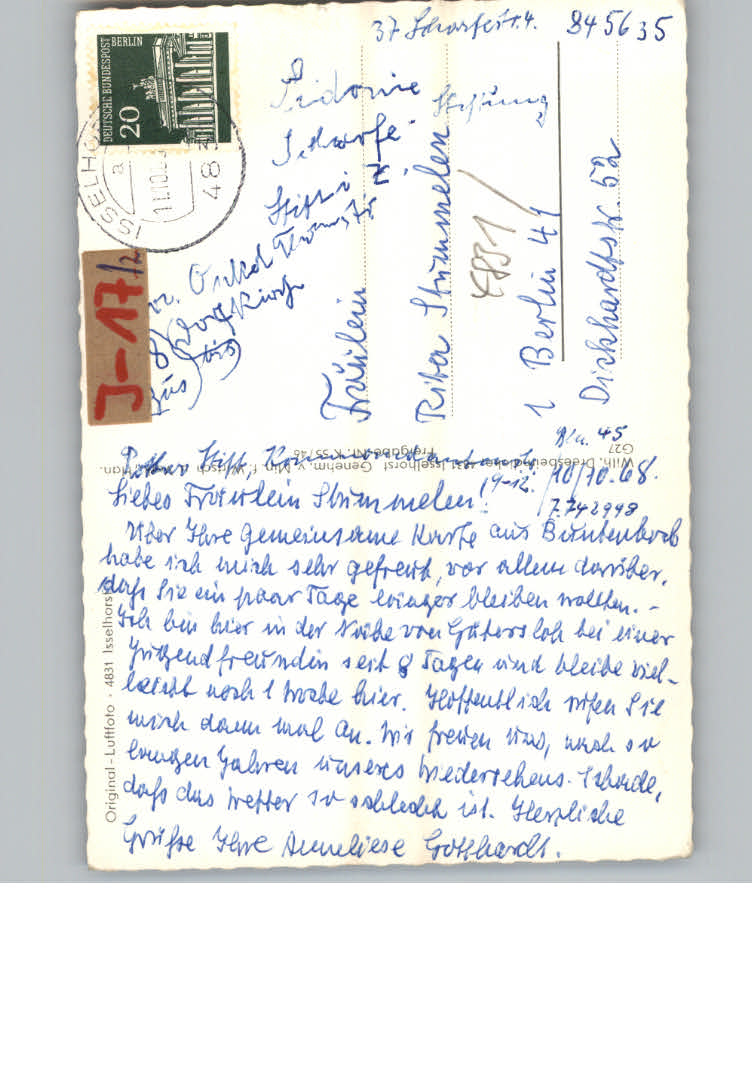 37 Scharfestr. 4. 845635
DEUTSCHE BUNDESPOST BERLIN
20
ISSELHO
a
11.10.
483
Sidonie
Scharfe
Stiftung
Stift
Onkel
Dorfkirche
J-17/2
4831
Fräulein
Rita Stummelen
1 Berlin 41
Dickhardtstr. 52
Wilh. Dreesbeimdieke, 4831 Isselhorst Genehm. v. Min. f. Wirtsch.
Freigabe-Nr. K 55/46
G27
45
Stift,
10/10.68.
Liebes Fräulein Stummelen! (9-12. 7742998
Über Ihre gemeinsame Karte aus Buntenbock
habe ich mich sehr gefreut, vor allem darüber,
daß Sie ein paar Tage länger bleiben wollten. –
Ich bin hier in der Nähe von Gütersloh bei einer
Jugendfreundin seit 8 Tagen und bleibe viel-
leicht noch 1 Woche hier. Hoffentlich rufen Sie
mich dann mal an. Wir freuen uns, nach so
langen Jahren unseres Wiedersehens. Schade,
daß das Wetter so schlecht ist. Herzliche
Grüße Ihre Anneliese Gotthardt.
Original-Luftfoto · 4831 Isselhorst